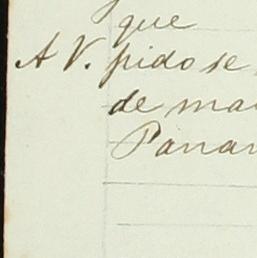 que
A V. pido se
de ma
Pana